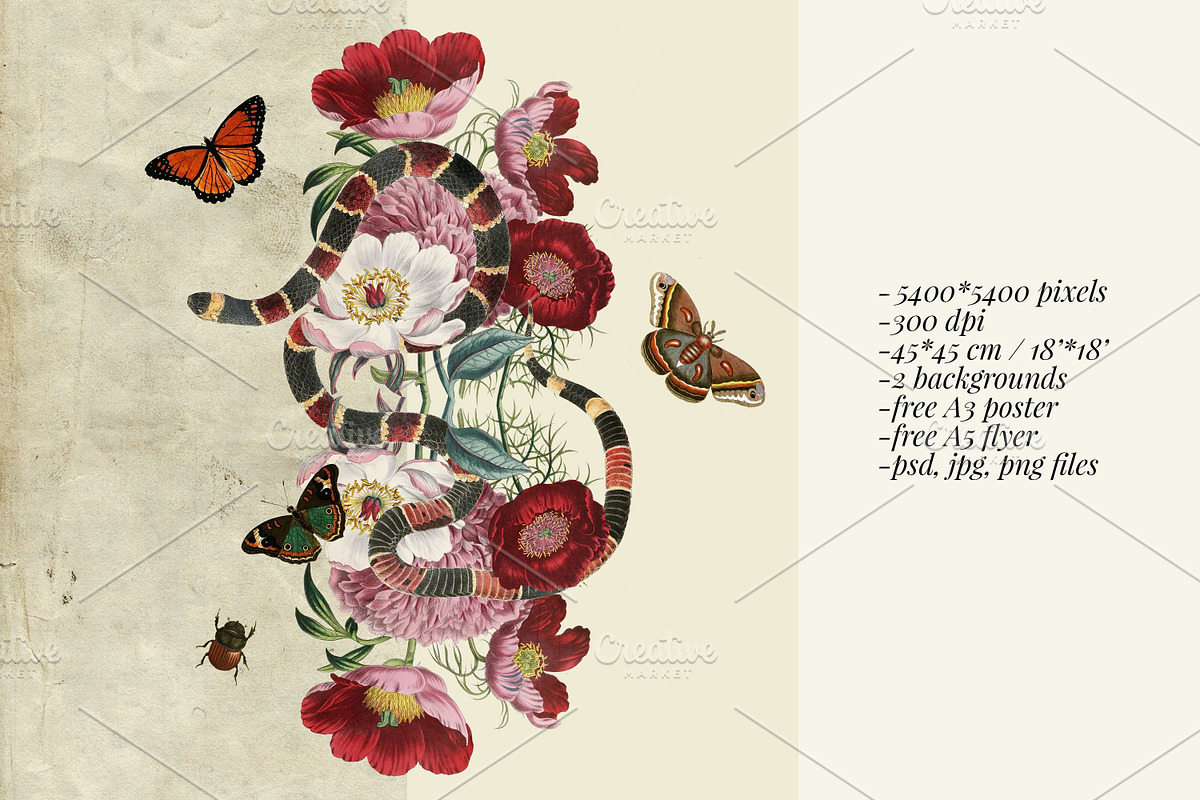 Creative
MARKET
Creative
MARKET
Creative
MARKET
Creative
MARKET
- 5400*5400 pixels
-300 dpi
-45*45 cm / 18’*18’
-2 backgrounds
-free A3 poster
-free A5 flyer
-psd, jpg, png files
Creative
MARKET
Creative
MARKET
Creative
MARKET
Creative
MARKET